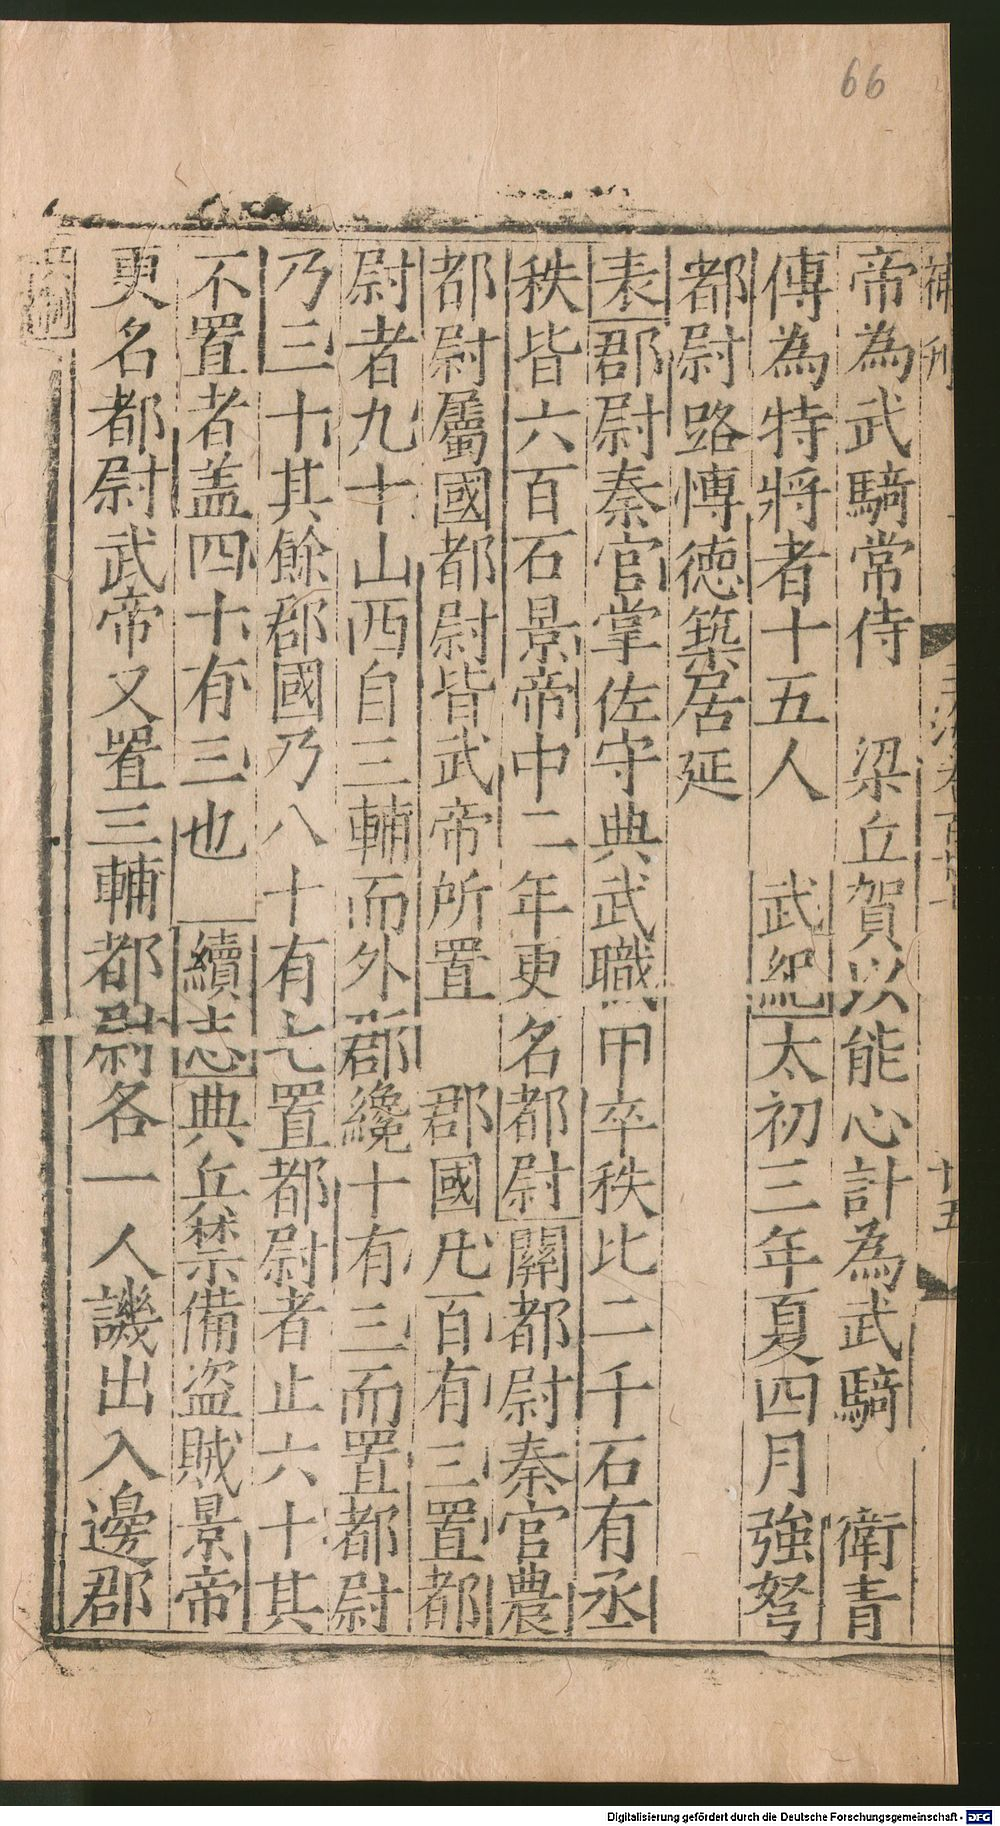 66
帝為武騎常侍　梁丘賀以能心計為武騎　衛青
傳為特將者十五人　武紀太初三年夏四月強弩
都尉路愽德築居延
表郡尉秦官掌佐守典武職甲卒秩比二千石有丞
秩皆六百石景帝中二年更名都尉關都尉秦官農
都尉屬國都尉皆武帝所置　郡國凡百有三置都
尉者九十山西自三輔而外郡纔十有三而置都尉
乃三十其餘郡國乃八十有七置都尉者止六十其
不置者盖四十有三也　續志典兵禁備盗賊景帝
更名都尉武帝又置三輔都尉各一人譏出入邊郡
Digitalisierung gefördert durch die Deutsche Forschungsgemeinschaft - DFG